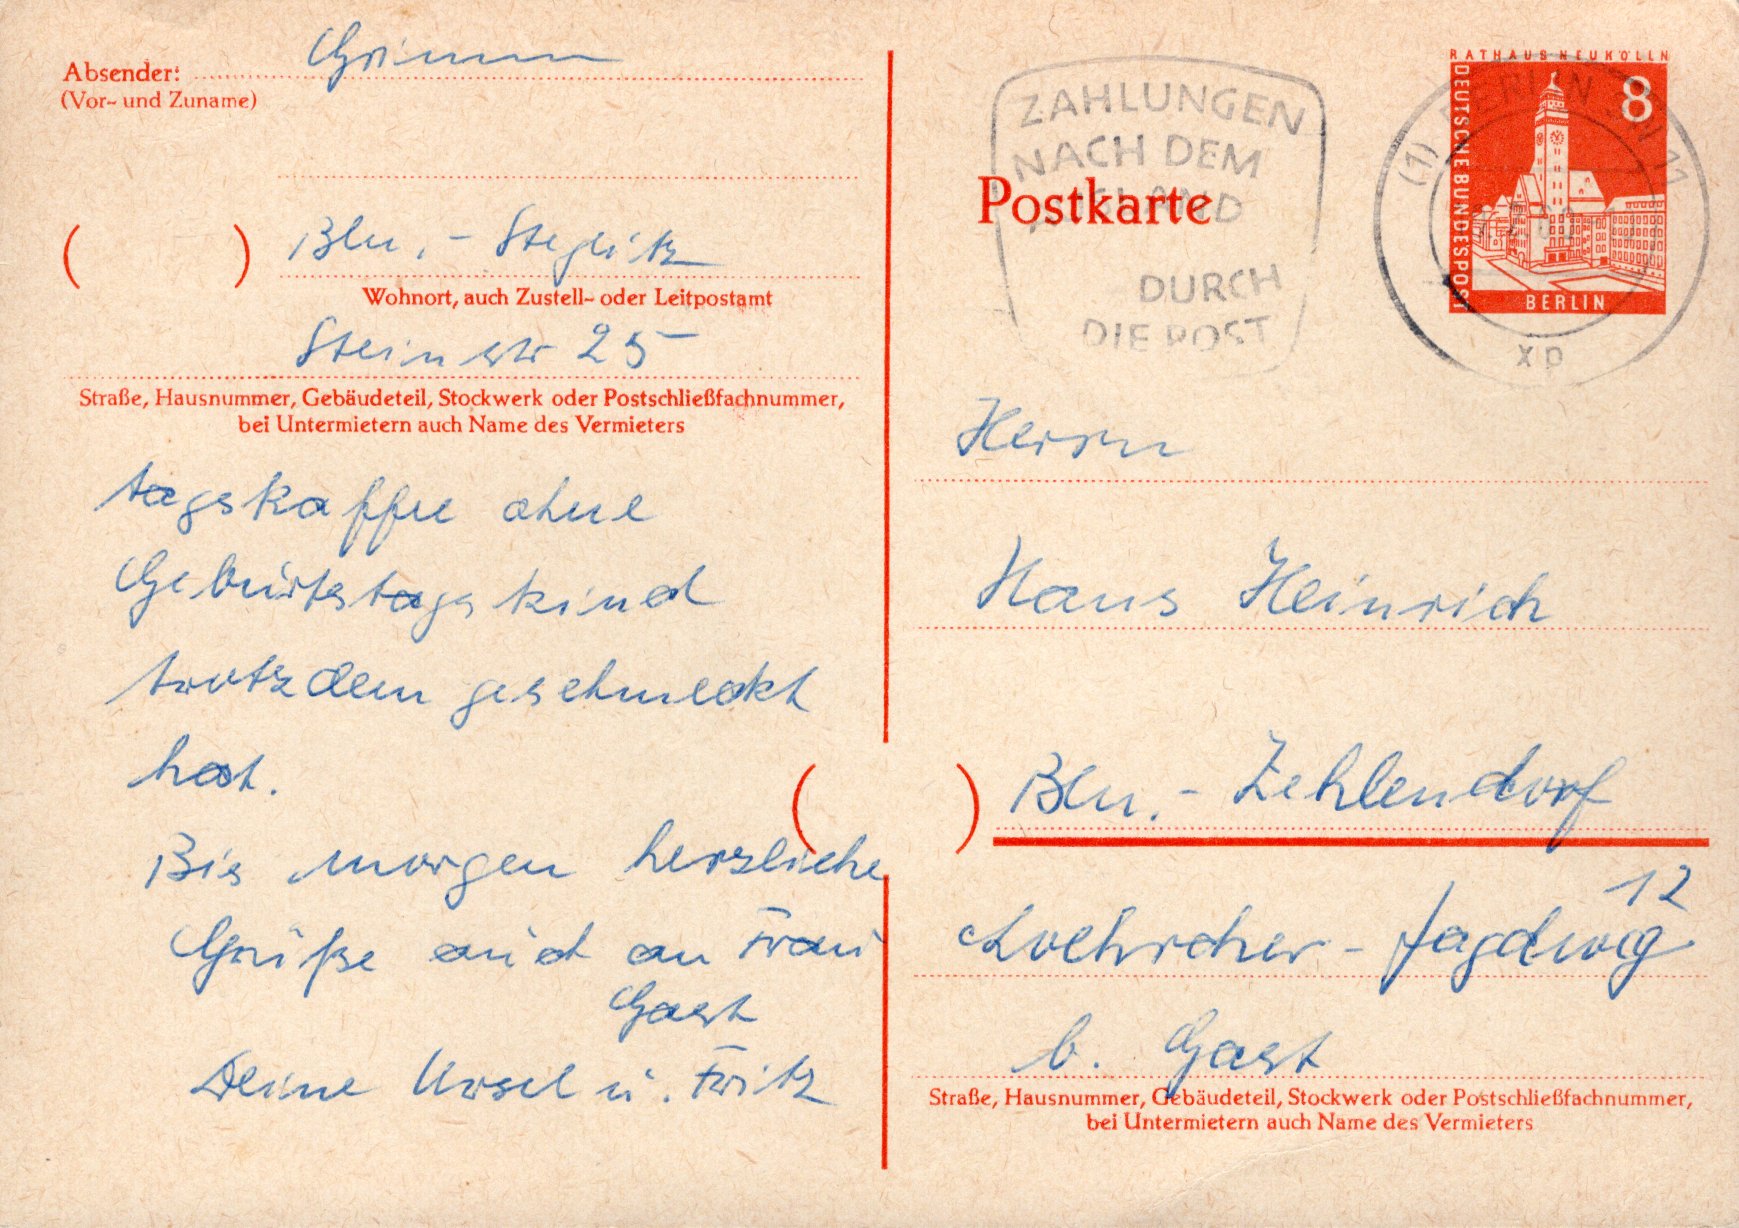 Absender: Grimm
(Vor- und Zuname)
Bln.-Steglitz
Wohnort, auch Zustell- oder Leitpostamt
Steinstr 25
Straße, Hausnummer, Gebäudeteil, Stockwerk oder Postschließfachnummer,
bei Untermietern auch Name des Vermieters
tagskaffee ohne
Geburtstagskind
trotzdem geschmeckt
hat.
Bis morgen herzliche
Grüße auch an Frau
Gast
Deine Ursel u. Fritz
ZAHLUNGEN
NACH DEM
AUSLAND
DURCH
DIE POST
Postkarte
RATHAUS NEUKÖLLN
DEUTSCHE BUNDESPOST
8
BERLIN
(1) BERLIN SW 11
xp
Herrn
Hans Heinrich
Bln.-Zehlendorf
12
Jagdweg
b. Gast
Straße, Hausnummer, Gebäudeteil, Stockwerk oder Postschließfachnummer,
bei Untermietern auch Name des Vermieters